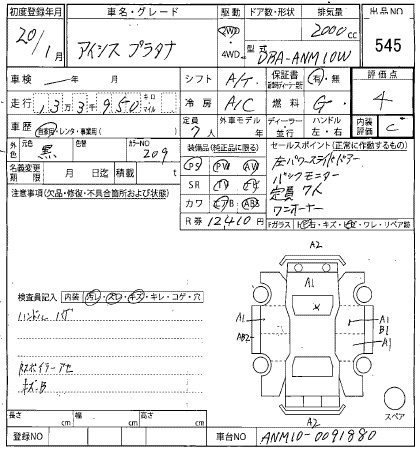 初度登録年月 車名・グレード 駆動 ドア数・形状 排気量 出品NO
20/1月 アイシス プラタナ 2WD 4WD 2000cc 545
型式 DBA-ANM10W
車検 年 月 シフト A/T 保証書 有・無 評価点
走行 13 3950 キロ マイル 冷房 A/C 燃料 G 4
車歴 自家用・レンタ・事業用( ) 定員 7人 外車モデル 年 ディーラー 並行 ハンドル 左・右 内装評価 C
外色 元色 黒 色替 カラーNO 209
名義変更期限 月 日迄 積載 t
装備品(純正品に限る) セールスポイント(正常に作動するもの)
PS PW 左パワースライドドアー
SR TV ナビ バックモニター
カワ エアB ABS 定員 7人
ワンオーナー
R券 12410 円
Fガラス キズ・ ワレ・リペア跡
注意事項(欠品・修復・不具合箇所および状態)
検査員記入 内装 汚レ・スレ・キズ・キレ・コゲ・穴
ハンドル ハゲ
キズ-B
A2
A1
A1
AB2
A1
B1
A1
A2
スペア
長さ cm 幅 cm 高さ cm
登録NO 車台NO ANM10-0091880